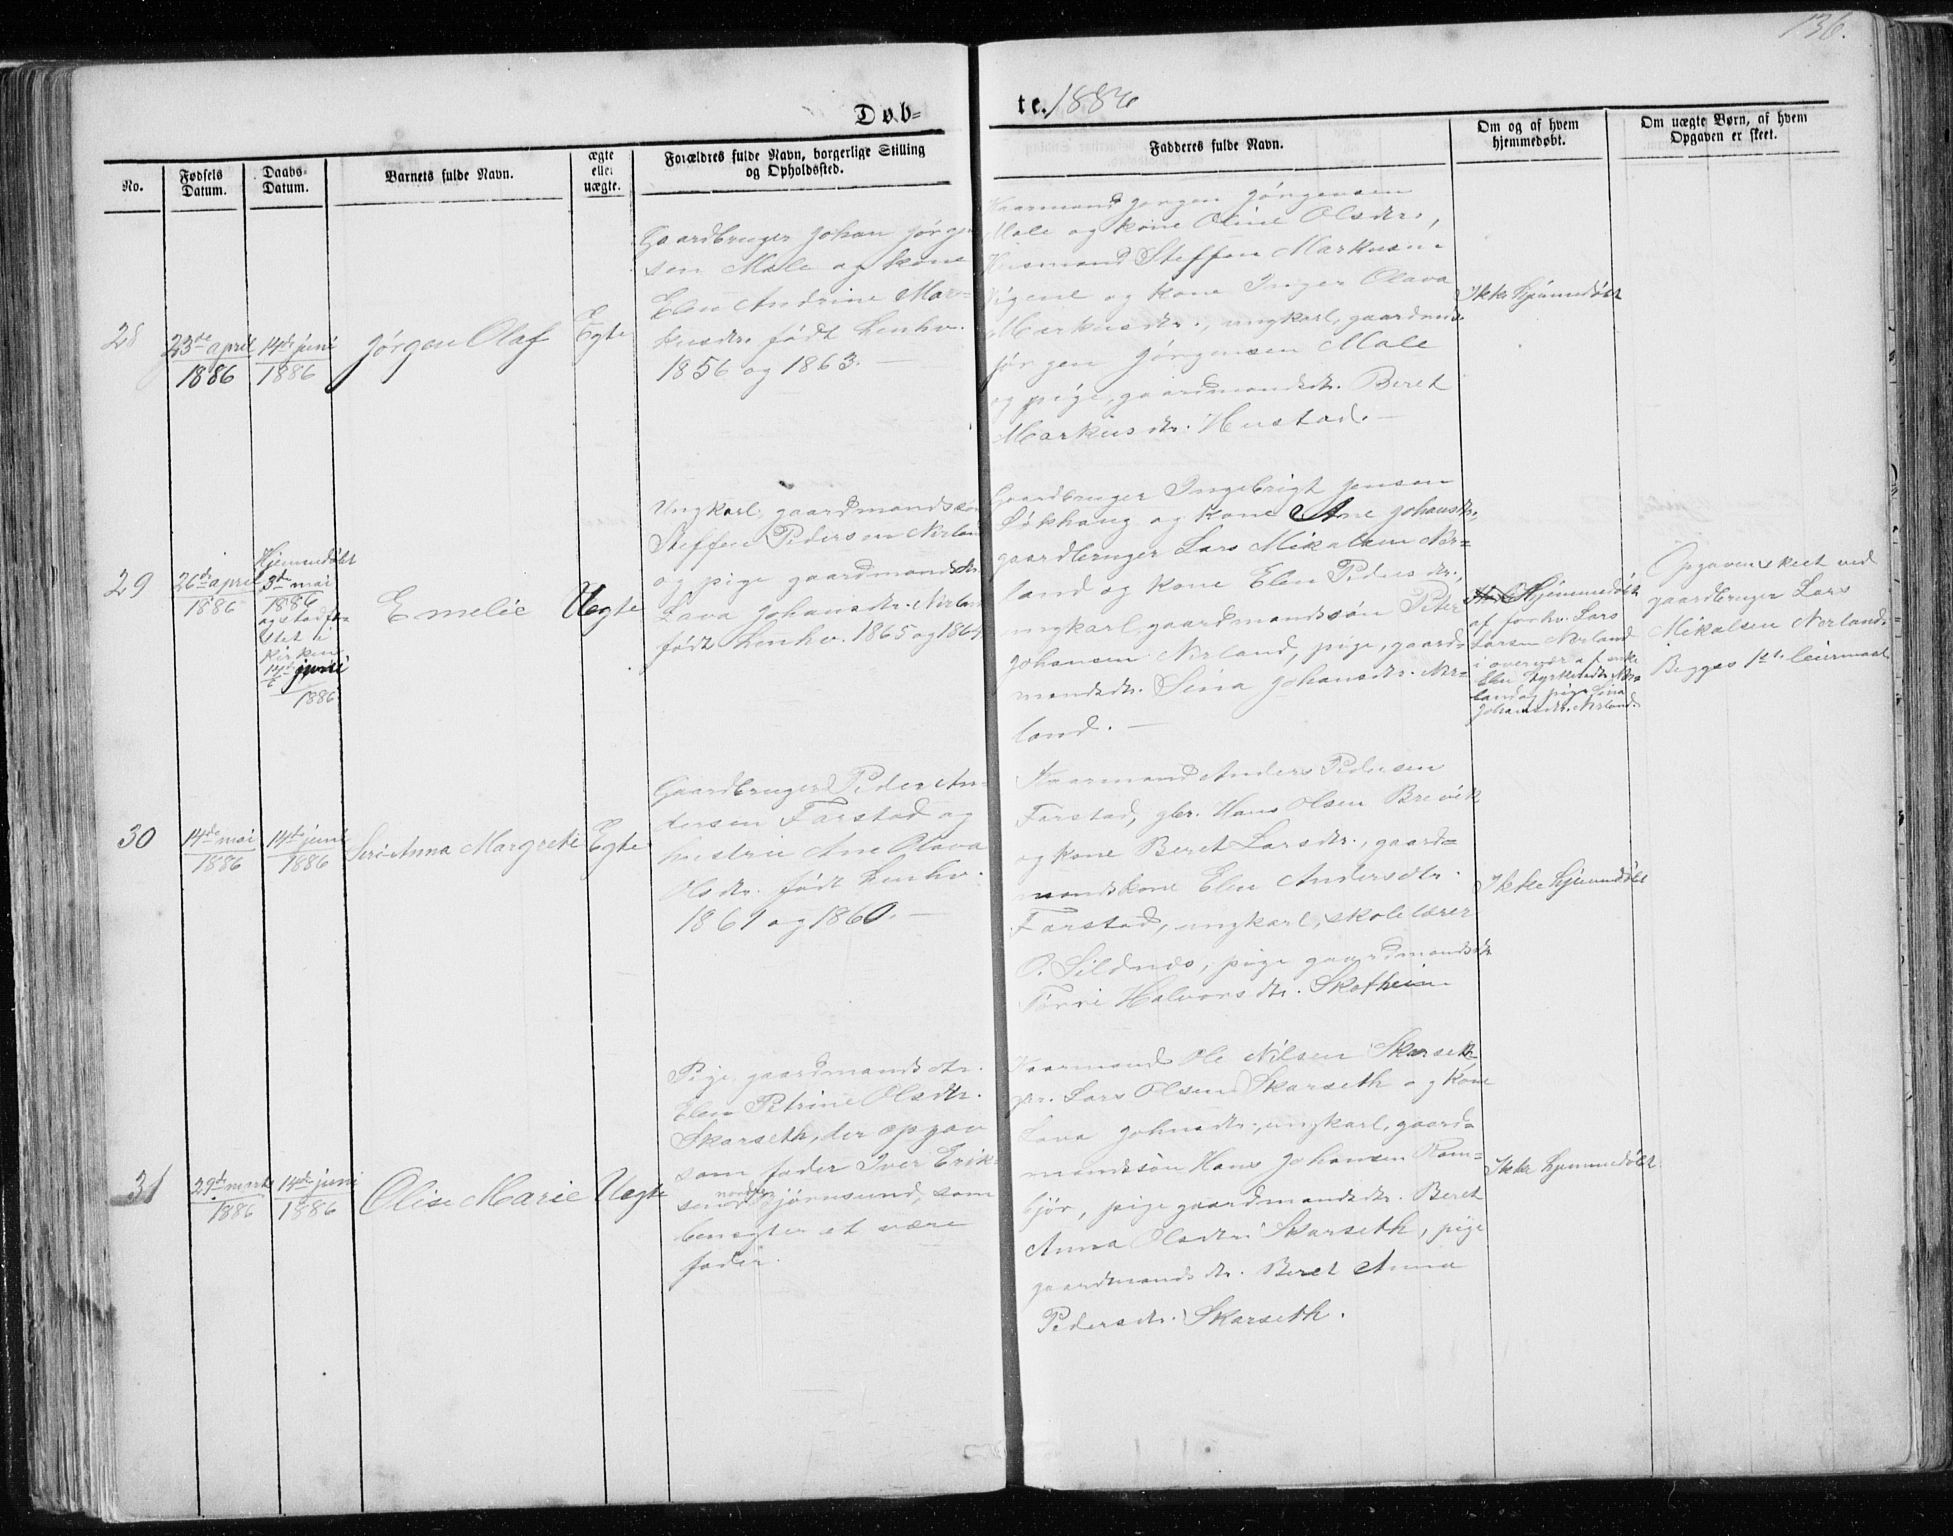 136.
Døb=
te. 1886
No.
Fødsels Datum.
Daabs-Datum.
Barnets fulde Navn.
ægte eller uægte.
Forældres fulde Navn, borgerlige Stilling
og Opholdssted.
Faddernes fulde Navn.
Om og af hvem
hjemmedøbt.
Om uægte Børn, af hvem
Opgaven er skeet.
28
23de april
1886
14de juni
1886
Jørgen Olaf
Egte
Gaardbruger Johan Jørgen
sen Male og kone
Elen Andrine Mar=
kusdtr. født henhv.
1856 og 1863. —
Kaarmand Jørgen Jørgensen
Male og kone Oline Olsdtr.,
Husmand Steffen Markusen
og kone Inger Olava
Markusdtr., ungkarl, gaardmd.
Jørgen Jørgensen Male
og pige, gaardmandsdtr. Beret
Markusdtr. Hustad. —
Ikke hjemmedøbt
29
26de april
1886
Hjemmedøbt
3de mai
1886
og stadfæ
stet i
kirken
14de juni
1886
Emelie
Uegte
Ungkarl, gaardmandssøn
Steffen Pedersen Nerland
og pige gaardmandsdtr.
Lava Johansdtr. Nerland
født henhv. 1865 og 1864
Gaardbruger Ingebrigt Jensen
Søkhaug og kone Ane Johansdtr.,
gaardbruger Lars Mikalsen Ner=
land og kone Elen Pedersdtr.,
ungkarl, gaardmandssøn Peter
Johansen Nerland, pige, gaard=
mandsdtr. Sina Johansdtr. Ner=
land. —
Hjemmedøbt
af forhv. Lars
Larsen Nerland
i overvær af enke
Elen Ner
land og pige Sina
Johansdtr. Nerland.
Opgaven skeet ved
gaardbruger Lars
Mikalsen Nerland.
Begges 1ste leiermaal
30
14de mai
1886
14de juni
1886
Seri Anna Margrete
Egte
Gaardbruger Peder An=
dersen Farstad og
hustru Ane Olava
Olsdtr. født henhv.
1861 og 1860. —
Kaarmand Anders Pedersen
Farstad, gbr. Hans Olsen Brevik
og kone Beret Larsdtr., gaard=
mandskone Elen Andersdtr.
Farstad, ungkarl, skolelærer
O. Sildnes, pige gaardmandsdtr.
Halvorsdtr. Skotheim
Ikke hjemmedøbt
31
29de marts
1886
14de juni
1886
Olise Marie
Uegte
Pige, gaardmandsdtr.
Elen Petrine Olsdtr.
Skarseth, der opgav
som fader Iver Erik=
sen nordre Bjørnsund, som
benegter at være
fader.
Kaarmand Ole Nilsen Skarseth,
gbr. Lars Olsen Skarseth og kone
Lava Johnsdtr., ungkarl, gaard=
mandssøn Hans Johansen Ram=
bjør, pige gaardmandsdtr. Beret
Anna Olsdtr. Skarseth, pige
gaardmandsdtr. Beret Anna
Pedersdtr. Skarseth.
Ikke hjemmedøbt